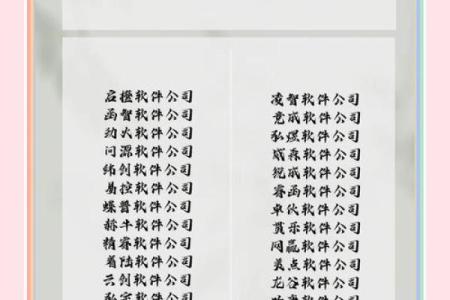 软件公司
函智软件公司
软件公司
问源软件公司
纬创软件公司
易控软件公司
蝶普软件公司
赫牛软件公司
精睿软件公司
着陆软件公司
云创软件公司
凌智软件公司
软件公司
弘煜软件公司
威森软件公司
软件公司
睿函软件公司
软件公司
软件公司
网赢软件公司
美点软件公司
龙谷软件公司